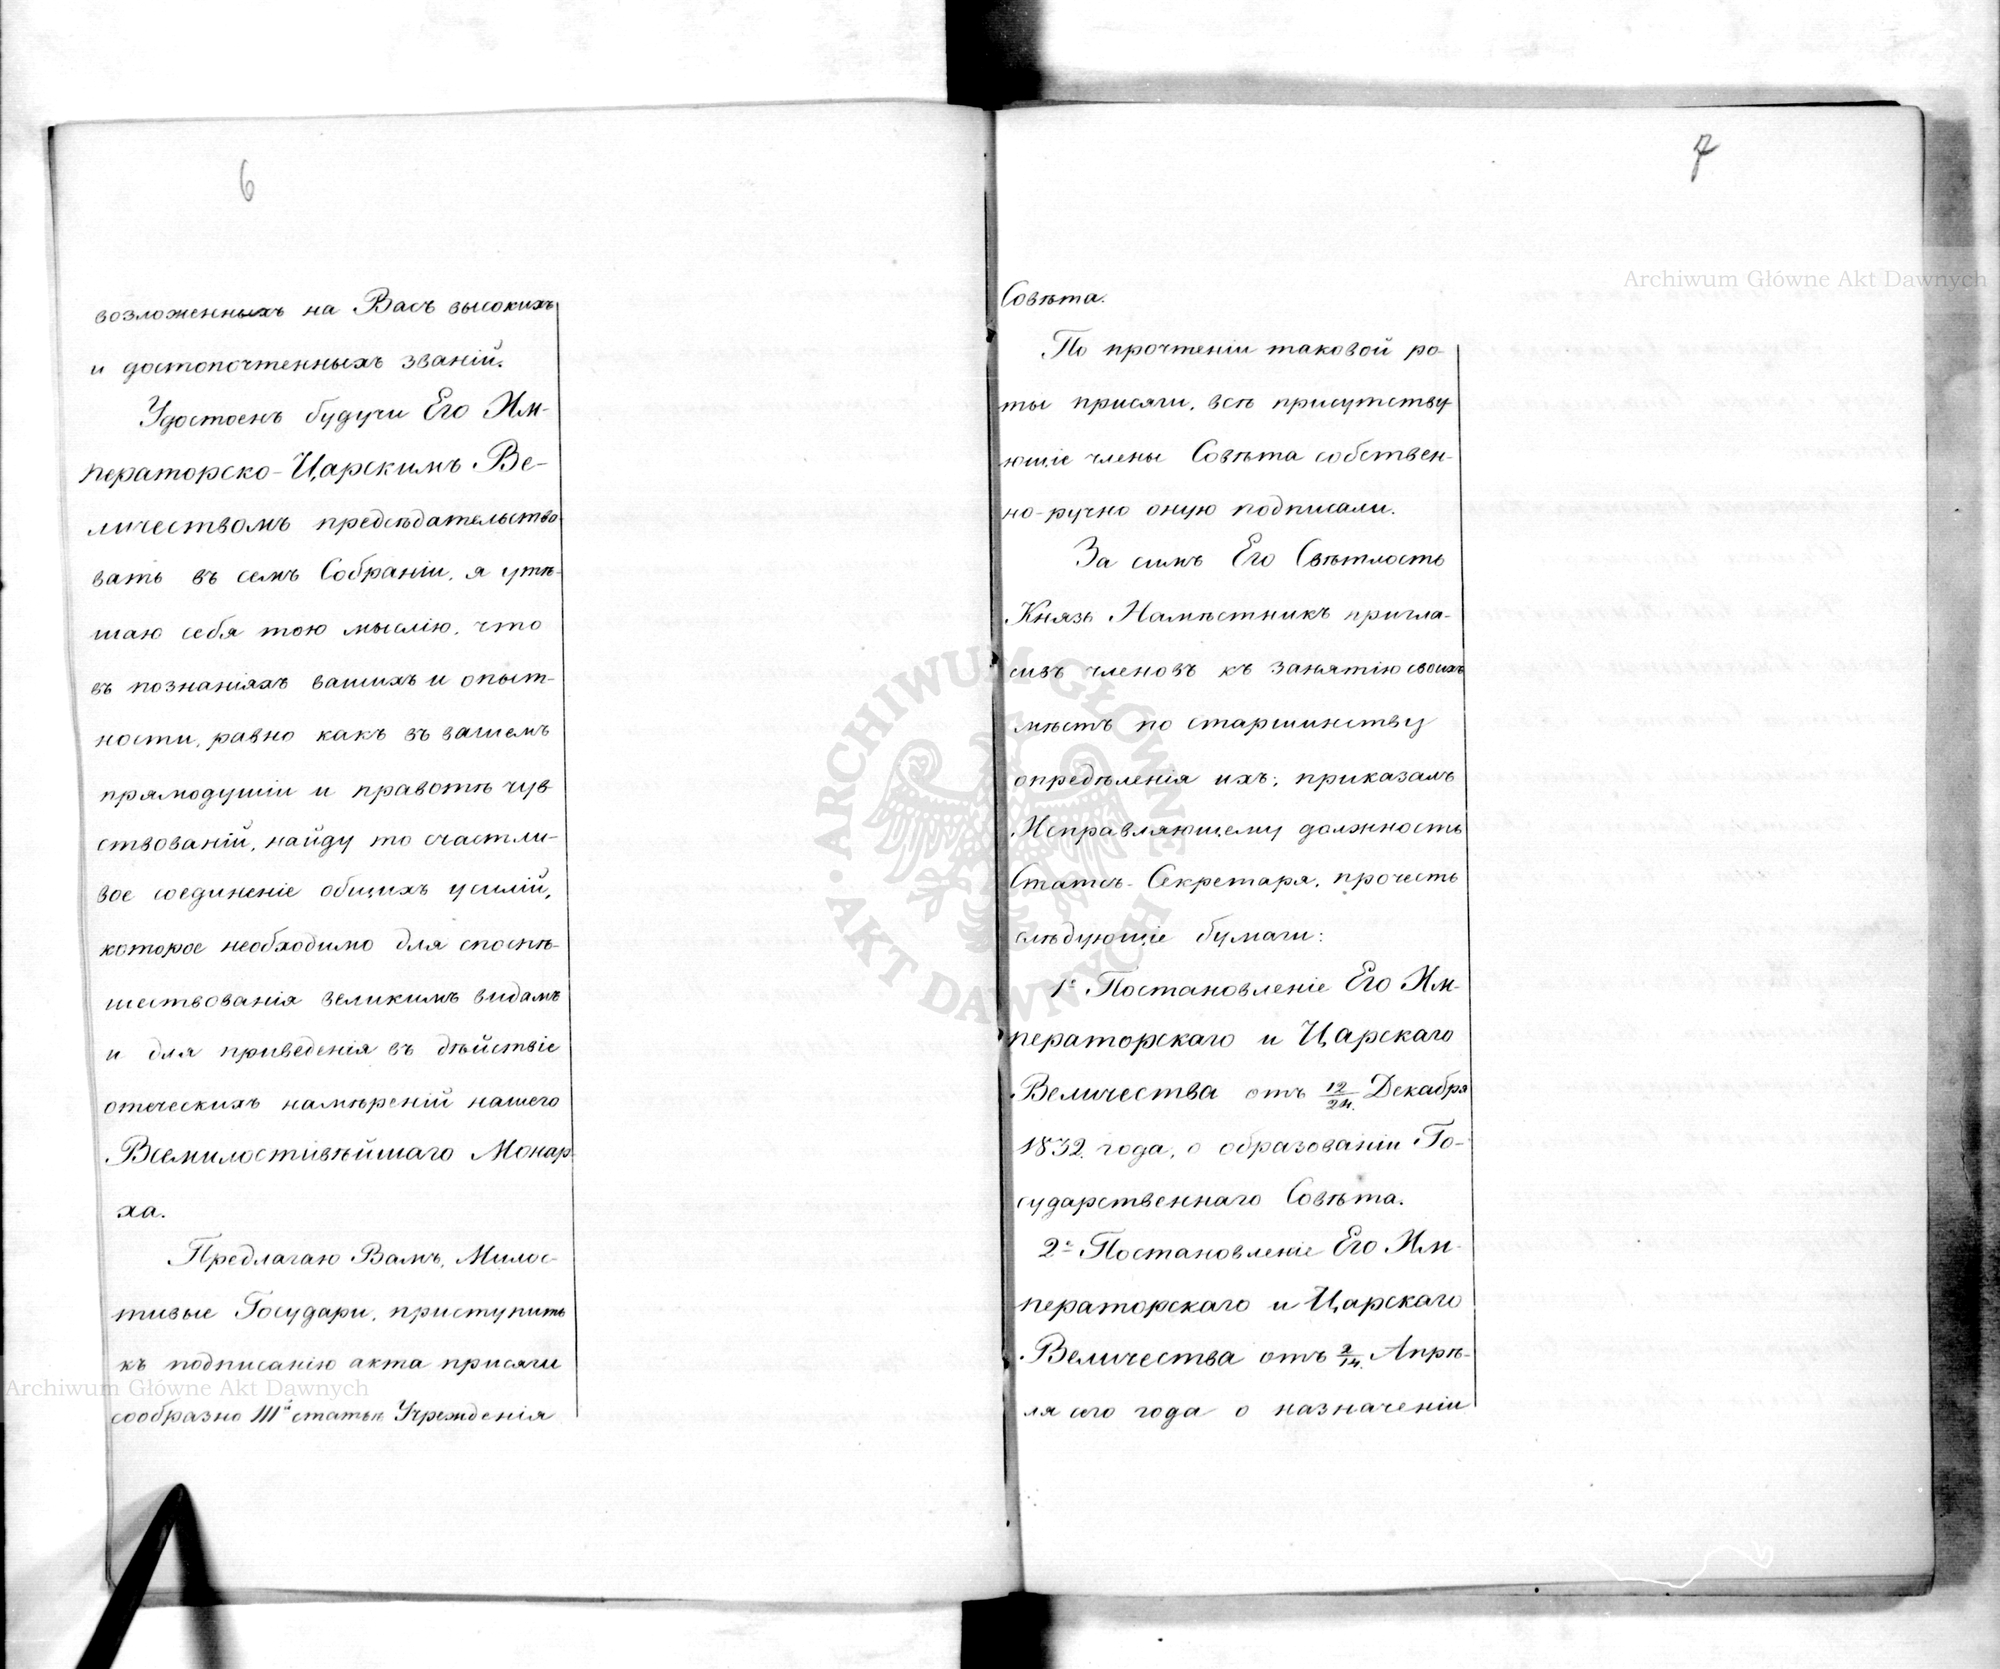 6
возложенныхъ на Васъ высокихъ
и достопочтенныхъ званій.
Удостоенъ будучи Его Им-
ператорско-Царскимъ Ве-
личествомъ предсѣдательство-
вать въ семъ Собраніи, я утѣ-
шаю себя тою мыслію, что
въ познаніяхъ вашихъ и опыт-
ности, равно какъ въ вашемъ
прямодушіи и правотѣ чув
ствованій, найду то счастли-
вое соединеніе общихъ усилій,
которое необходимо для споспѣ-
шествованія великимъ видамъ
и для приведенія въ дѣйствіе
отеческихъ намѣреній нашего
Всемилостивѣйшаго Монар
ха.
Предлагаю Вамъ, Милос-
тивые Государи, приступить
къ подписанію акта присяги
сообразно III й статьѣ Учрежденія
7
Совѣта.
По прочтеніи таковой ро-
ты присяги, всѣ присутству
ющіе члены Совѣта собствен-
но-ручно оную подписали.
За симъ Его Свѣтлость
Князь Намѣстникъ пригла-
сивъ членовъ къ занятію своихъ
мѣстъ по старшинству
опредѣленія ихъ; приказалъ
Исправляющему должность
Статсъ-Секретаря, прочесть
слѣдующіе бумаги:
1е Постановленіе Его Им-
ператорскаго и Царскаго
Величества отъ 12/24. Декабря
1832. года, о образованіи Го-
сударственнаго Совѣта.
2е Постановленіе Его Им-
ператорскаго и Царскаго
Величества отъ 2/14. Апрѣ-
ля сего года о назначеніи
Archiwum Główne Akt Dawnych
Archiwum Główne Akt Dawnych
ARCHIWUM GŁÓWNE · AKT DAWNYCH ·